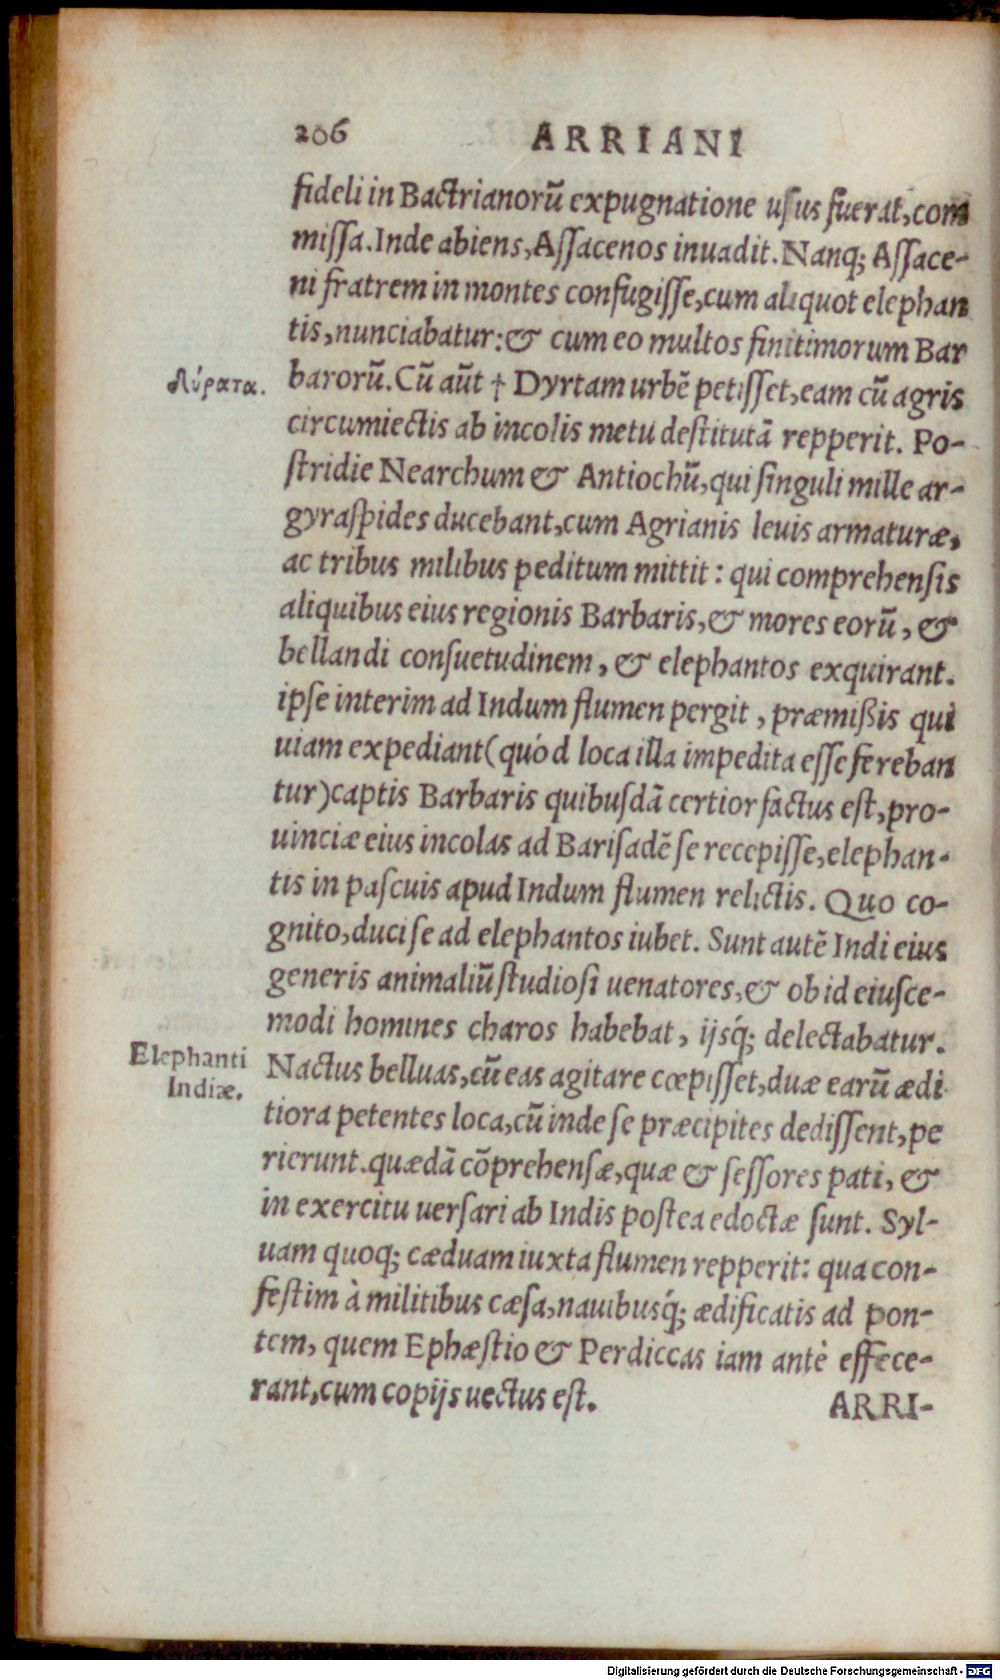 206 ARRIANI
fideli in Bactrianorũ expugnatione usus fuerat, com
missa. Inde abiens, Assacenos inuadit. Nanq; Assace-
ni fratrem in montes confugisse, cum aliquot elephan
tis, nunciabatur: & cum eo multos finitimorum Bar
barorũ. Cũ aũt † Dyrtam urbẽ petisset, eam cũ agris
circumiectis ab incolis metu destitutã repperit. Po-
stridie Nearchum & Antiochũ, qui singuli mille ar-
gyraspides ducebant, cum Agrianis leuis armaturæ,
ac tribus milibus peditum mittit: qui comprehensis
aliquibus eius regionis Barbaris, & mores eorũ, &
bellandi consuetudinem, & elephantos exquirant.
ipse interim ad Indum flumen pergit, præmißis qui
uiam expediant (quód loca illa impedita esse fereban
tur) captis Barbaris quibusdã certior factus est, pro-
uinciæ eius incolas ad Barisadẽ se recepisse, elephan-
tis in pascuis apud Indum flumen relictis. Quo co-
gnito, duci se ad elephantos iubet. Sunt autẽ Indi eius
generis animaliũ studiosi uenatores, & ob id eiusce-
modi homines charos habebat, ijsq́; delectabatur.
Nactus belluas, cũ eas agitare cœpisset, duæ earũ ædi
tiora petentes loca, cũ inde se præcipites dedissent, pe
rierunt. quædã cõprehensæ, quæ & sessores pati, &
in exercitu uersari ab Indis postea edoctæ sunt. Syl-
uam quoq; cæduam iuxta flumen repperit: qua con-
festim à militibus cæsa, nauibusq́; ædificatis ad pon-
tem, quem Ephæstio & Perdiccas iam antè effece-
rant, cum copijs uectus est.
ARRI-
Elephanti
Indiæ.
Digitalisierung gefördert durch die Deutsche Forschungsgemeinschaft - DFG